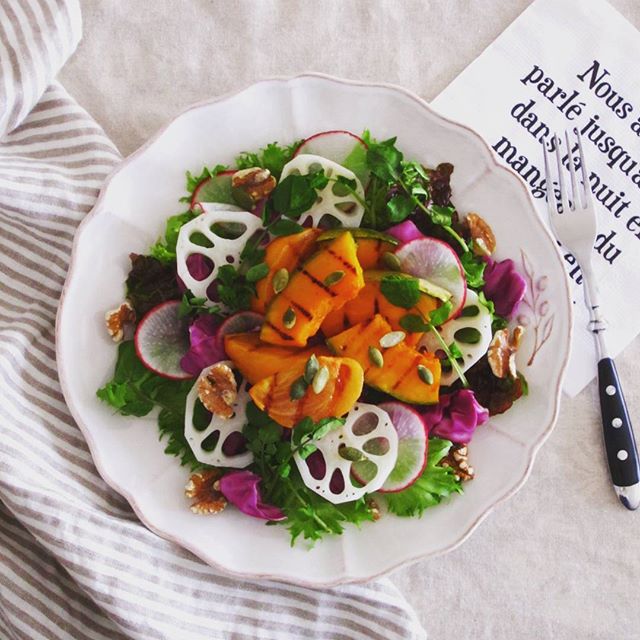 Nous a
parlé jusqu'a
dans la nuit e
mang
du